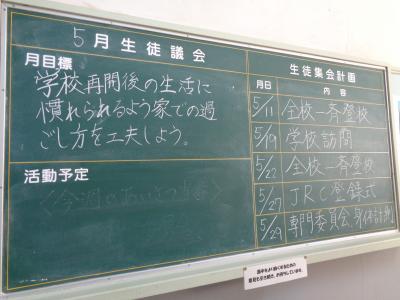 5月生徒議会
月目標
学校再開後の生活に
慣れられるよう家での過
ごし方を工夫しよう。
活動予定
<今週のあいさつ当番>
生徒集会計画
月日 内容
5/11 全校一斉登校
5/19 学校訪問
5/22 全校一斉登校
5/27 JRC登録式
5/29 専門委員会、身体計測